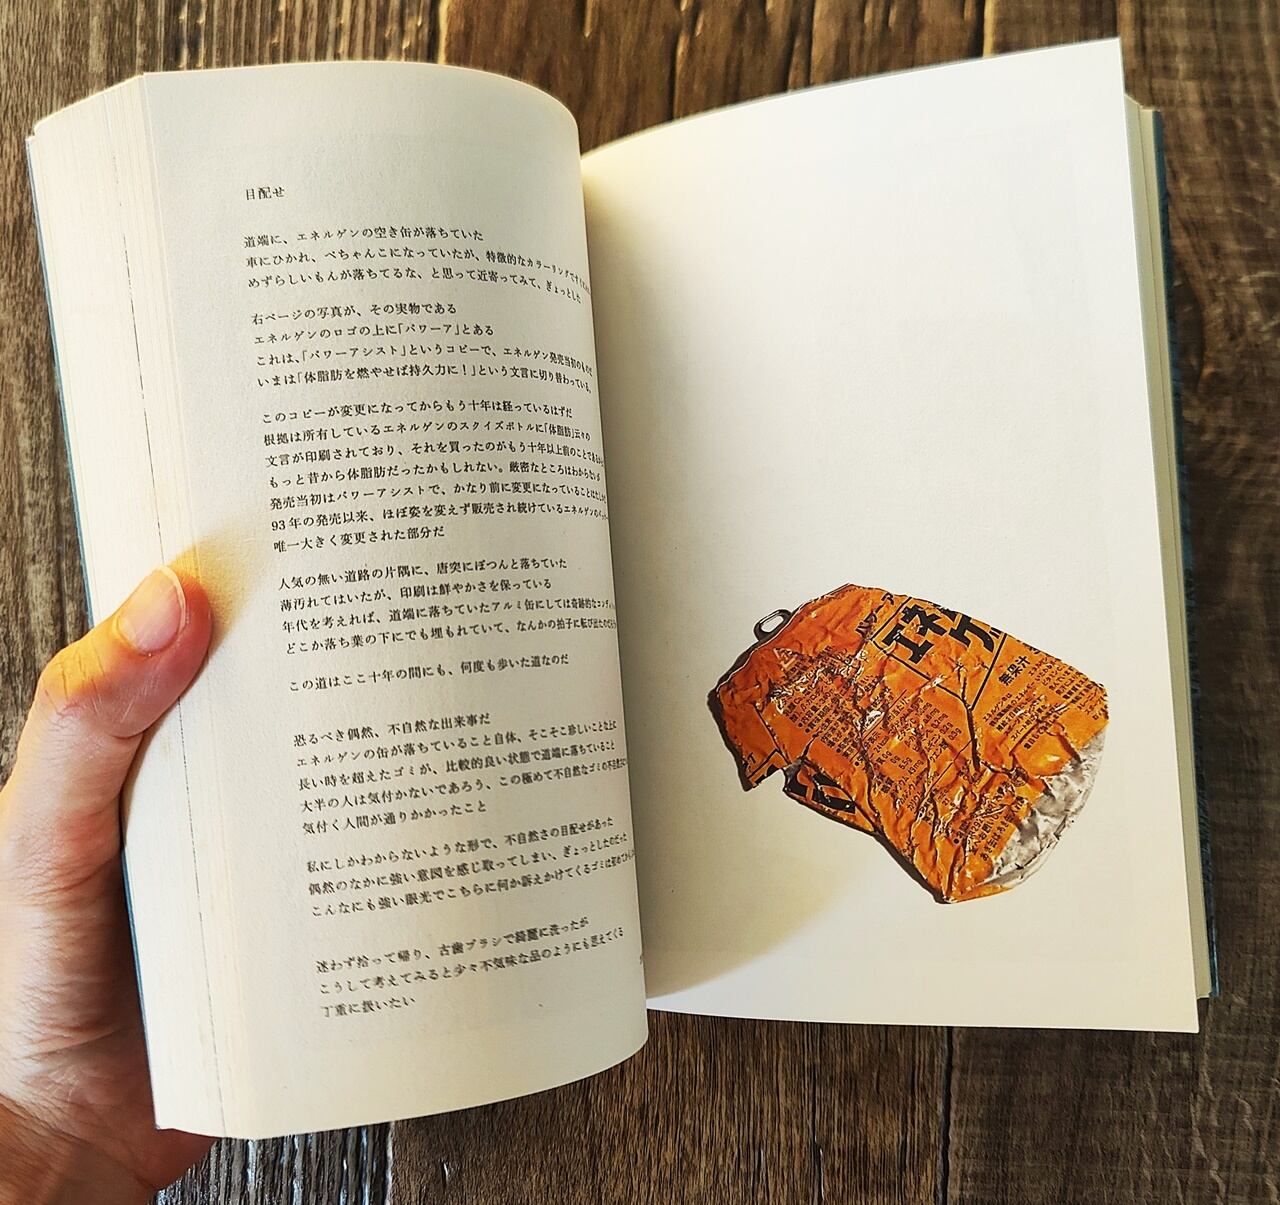 目配せ
道端に、エネルゲンの空き缶が落ちていた
車にひかれ、ぺちゃんこになっていたが、特徴的なカラーリングで
めずらしいもんが落ちてるな、と思って近寄ってみて、ぎょっとした
右ページの写真が、その実物である
エネルゲンのロゴの上に「パワーア」とある
これは、「パワーアシスト」というコピーで、エネルゲン発売当初のもの
いまは「体脂肪を燃やせば持久力に！」という文言に切り替わっている。
このコピーが変更になってからもう十年は経っているはずだ
根拠は所有しているエネルゲンのスクイズボトルに「体脂肪」云々の
文言が印刷されており、それを買ったのがもう十年以上前のことである
もっと昔から体脂肪だったかもしれない。厳密なところはわからないが
発売当初はパワーアシストで、かなり前に変更になっていることは
93年の発売以来、ほぼ姿を変えず販売され続けているエネルゲンの
唯一大きく変更された部分だ
人気の無い道路の片隅に、唐突にぽつんと落ちていた
薄汚れてはいたが、印刷は鮮やかさを保っている
年代を考えれば、道端に落ちていたアルミ缶にしては奇跡的な
どこか落ち葉の下にでも埋もれていて、なんかの拍子に転び出た
この道はここ十年の間にも、何度も歩いた道なのだ
恐るべき偶然、不自然な出来事だ
エネルゲンの缶が落ちていること自体、そこそこ珍しいことな上に
長い時を超えたゴミが、比較的良い状態で道端に落ちていること
大半の人は気付かないであろう、この極めて不自然なゴミの
気付く人間が通りかかったこと
私にしかわからないような形で、不自然さの目配せがあった
偶然のなかに強い意図を感じ取ってしまい、ぎょっとしたのだった
こんなにも強い眼光でこちらに何か訴えかけてくるゴミは初めて
迷わず拾って帰り、古歯ブラシで綺麗に洗ったが
こうして考えてみると少々不気味な品のようにも思えてくる
丁重に扱いたい
パワーア
エネ
ゲ
無果汁